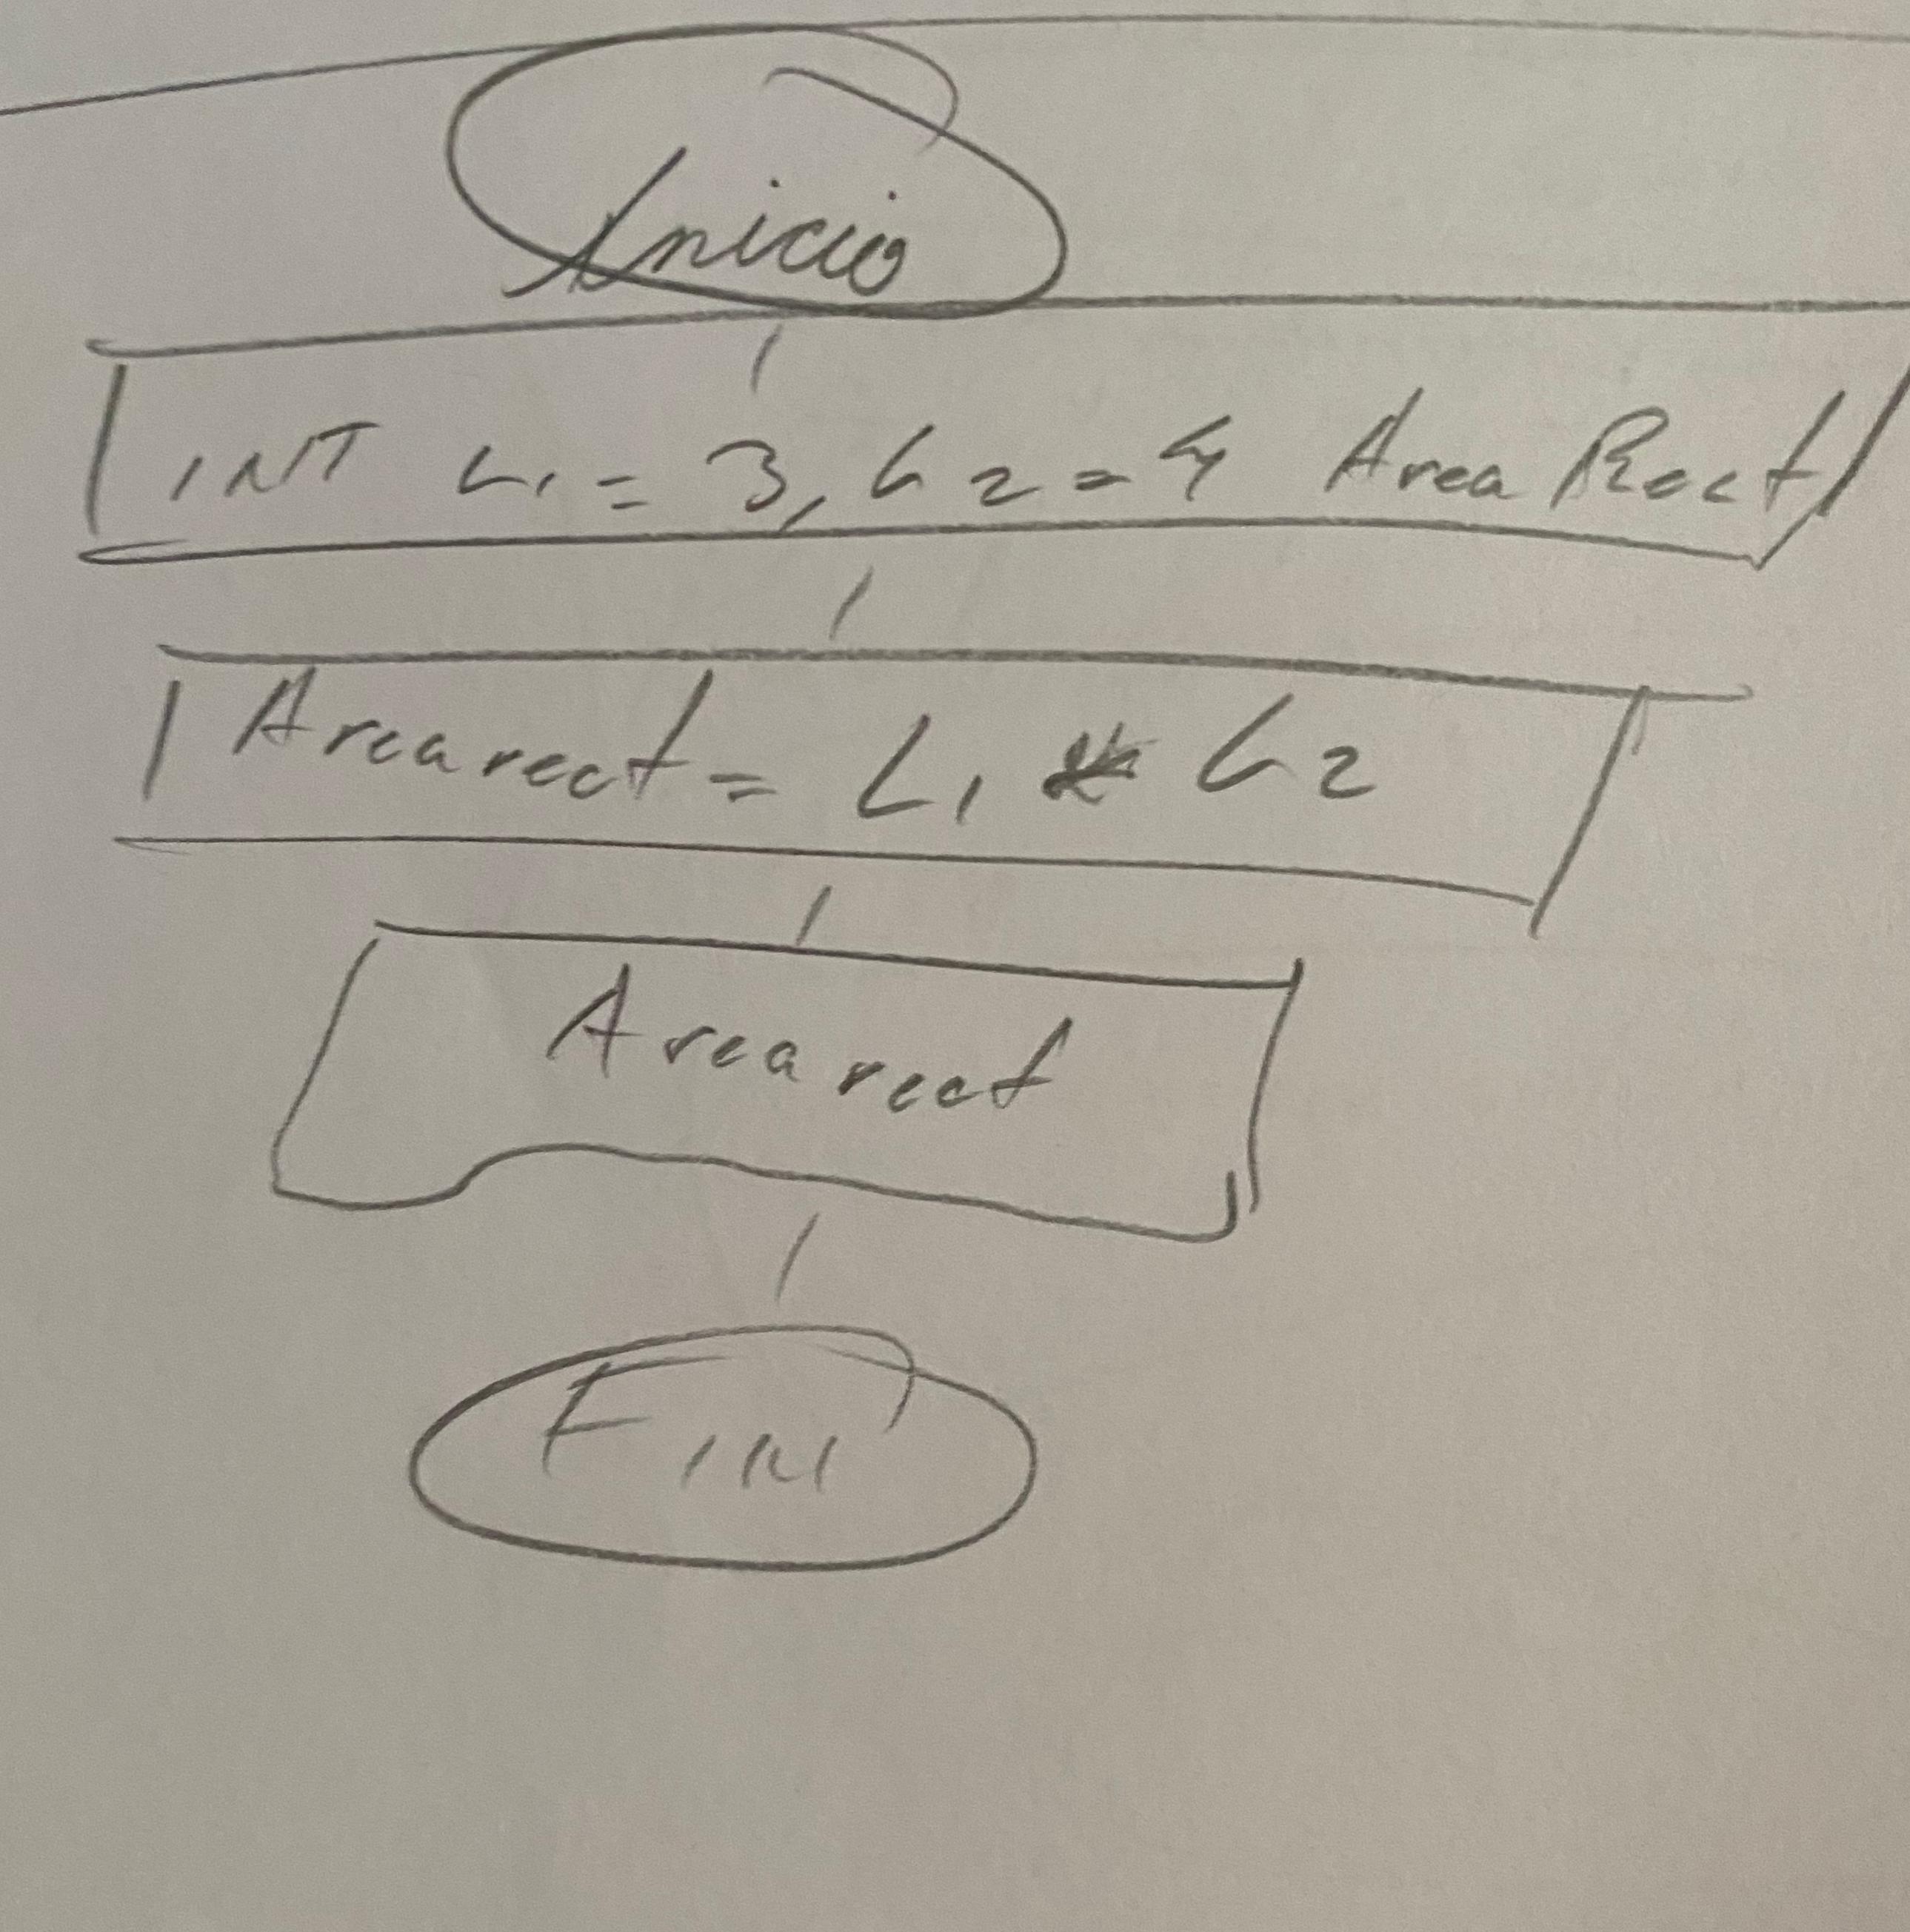 Inicio
INT L1 = 3, L2 = 4 Area Rect
Area rect = L1 * L2
Area rect
FIN